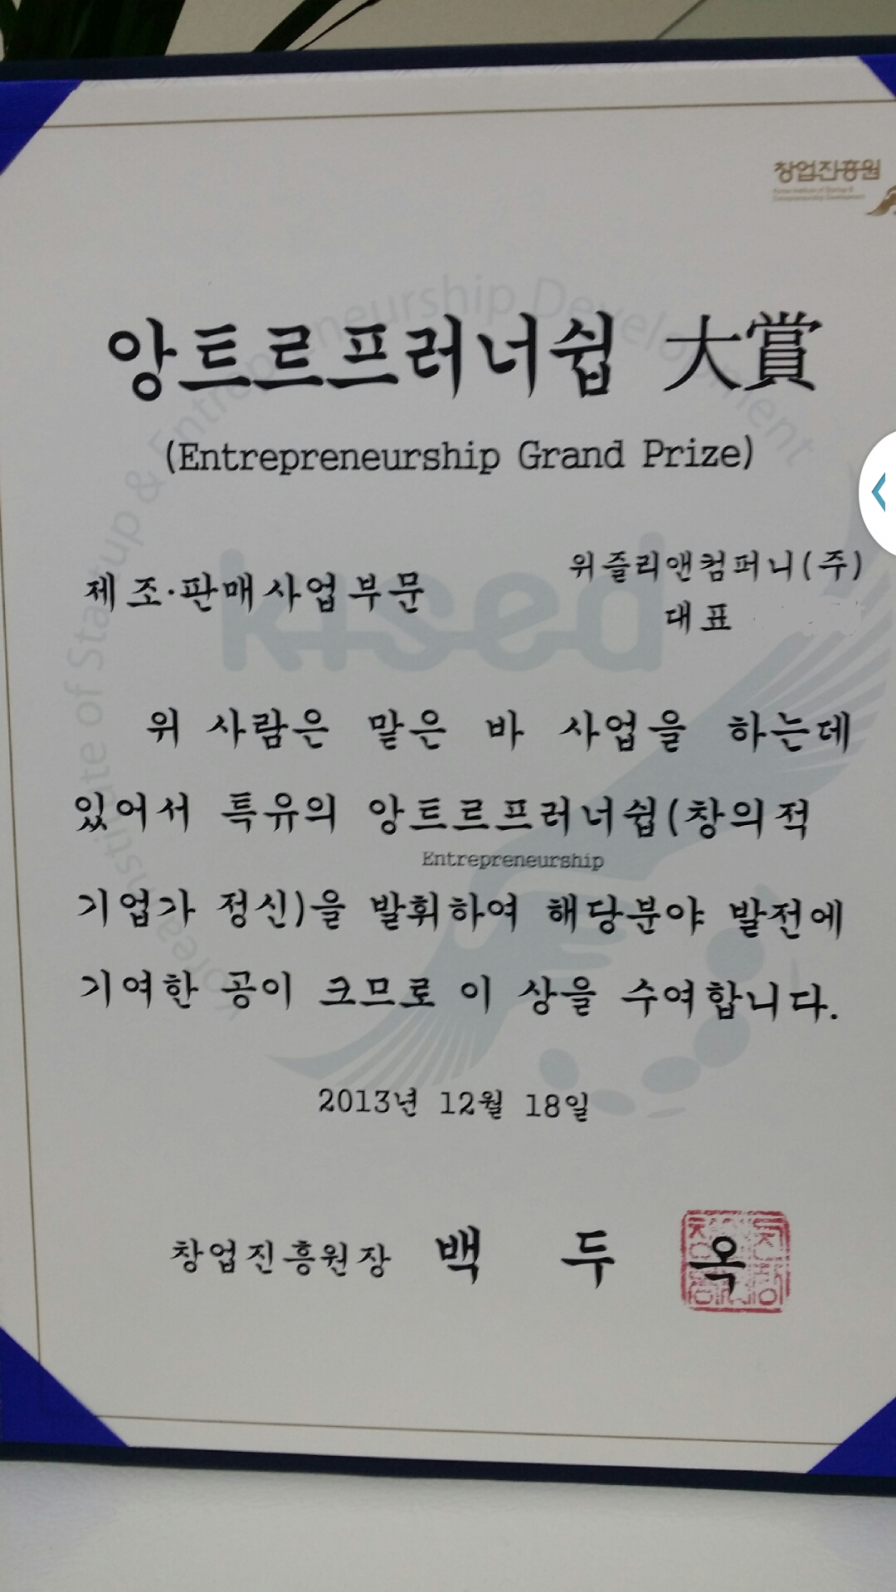 창업진흥원
Korea Institute of Startup &
Entrepreneurship Development
앙트르프러너쉽 大賞
(Entrepreneurship Grand Prize)
제조·판매사업부문
위즐리앤컴퍼니(주)
대표
위 사람은 맡은 바 사업을 하는데
있어서 특유의 앙트르프러너쉽(창의적
Entrepreneurship
기업가 정신)을 발휘하여 해당분야 발전에
기여한 공이 크므로 이 상을 수여합니다.
2013년 12월 18일
창업진흥원장 백 두 옥
kised